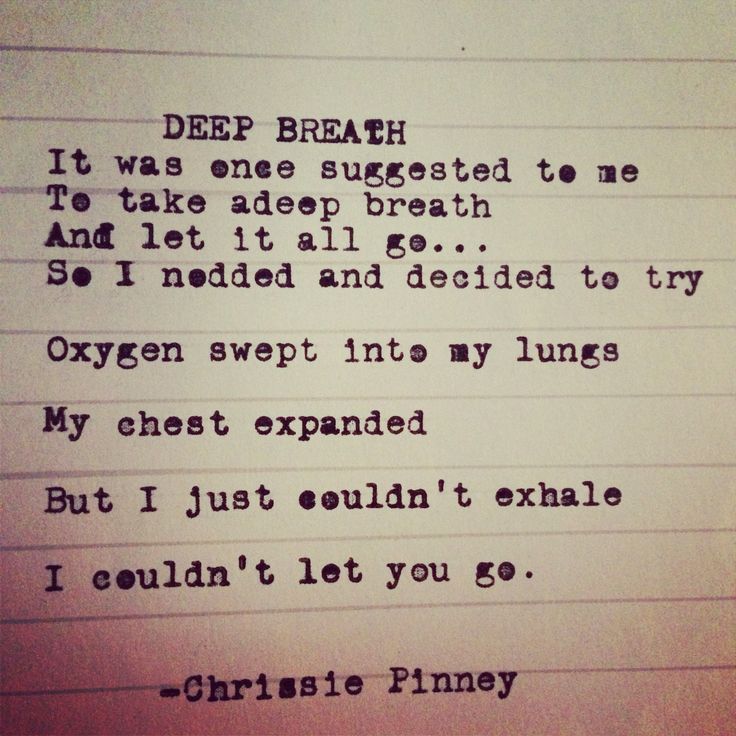 DEEP BREATH
It was once suggested to me
To take adeep breath
And let it all go...
So I nodded and decided to try
Oxygen swept into my lungs
My chest expanded
But I just couldn't exhale
I couldn't let you go.
-Chrissie Pinney